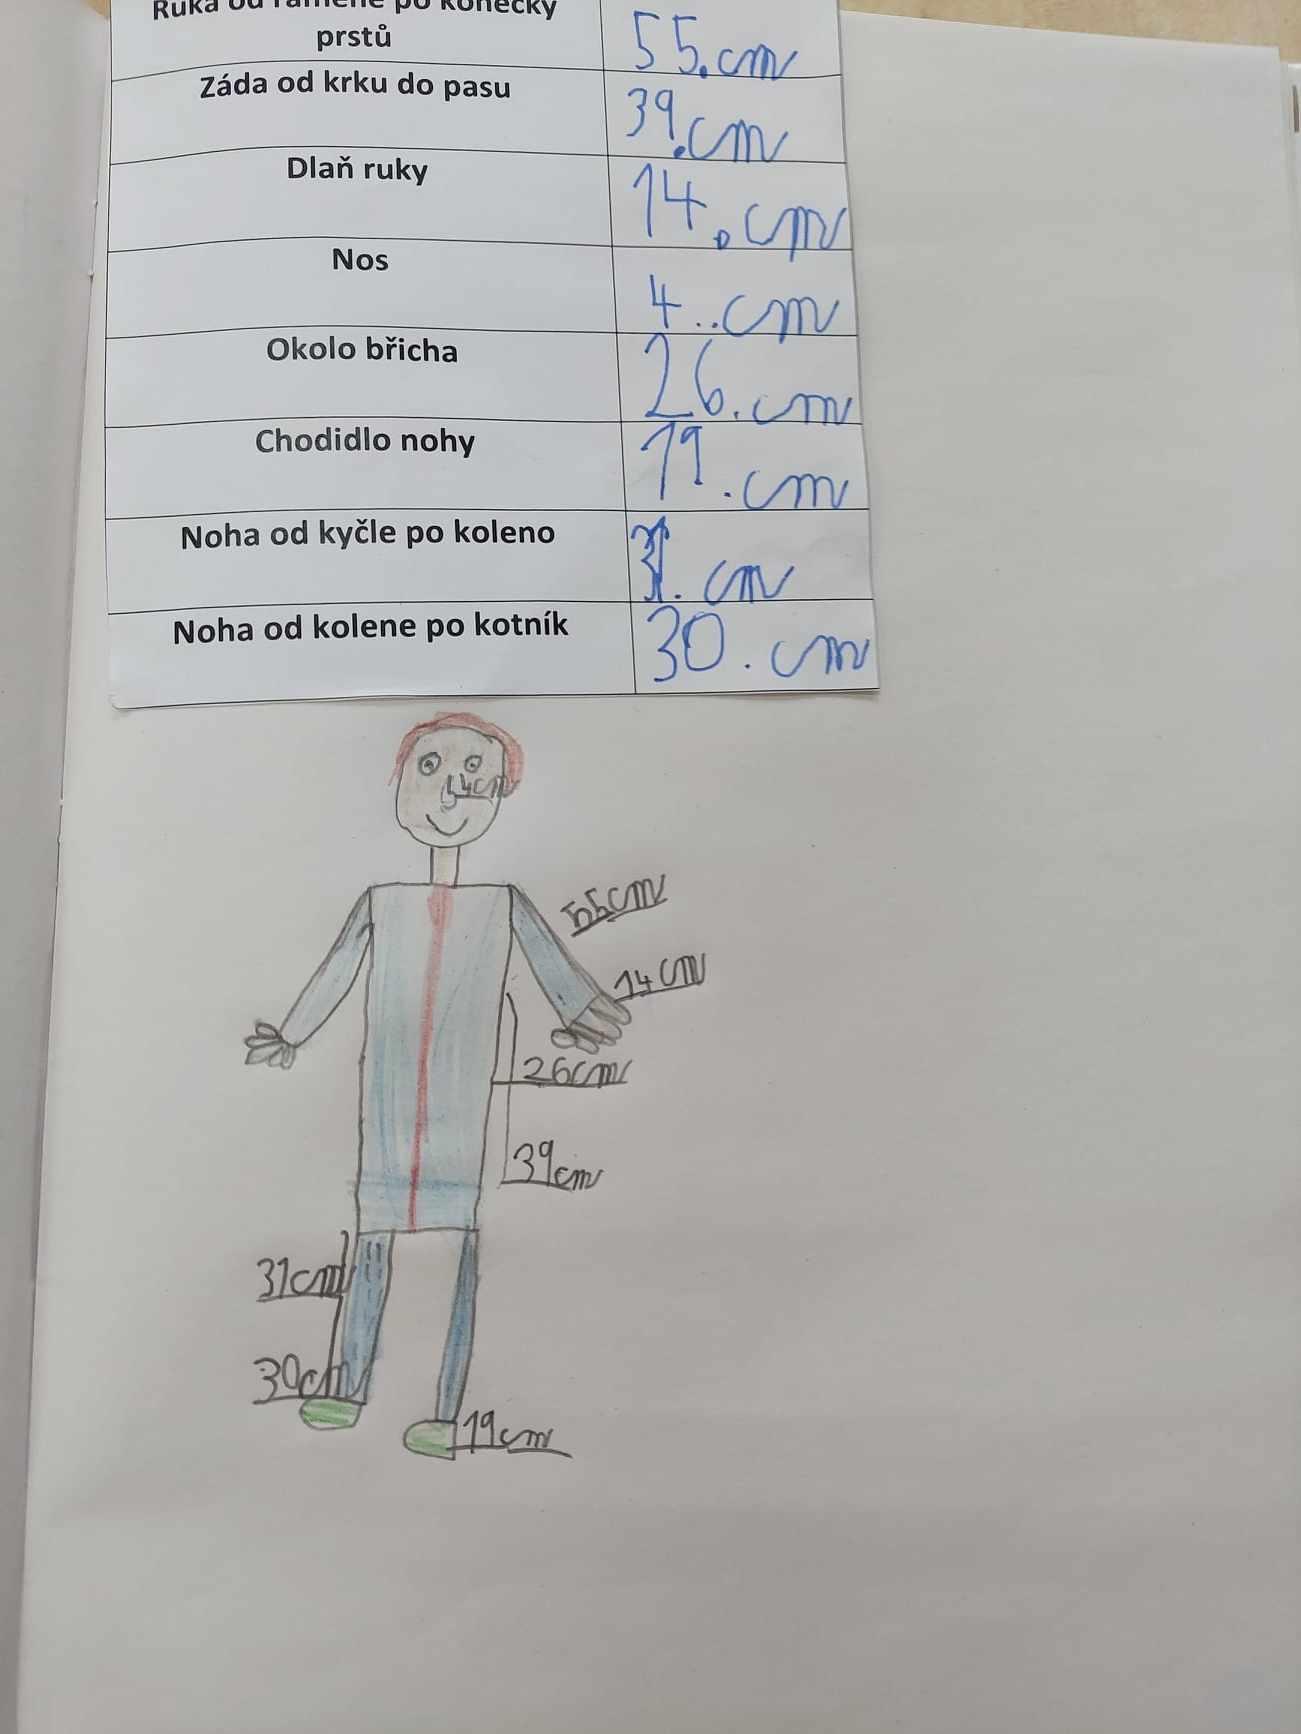 Ruka od ramene po konečky
prstů
55.cm
Záda od krku do pasu
39.cm
Dlaň ruky
14.cm
Nos
4..cm
Okolo břicha
26.cm
Chodidlo nohy
19.cm
Noha od kyčle po koleno
31.cm
Noha od kolene po kotník
30.cm
4cm
55cm
14cm
26cm
39cm
31cm
30cm
19cm